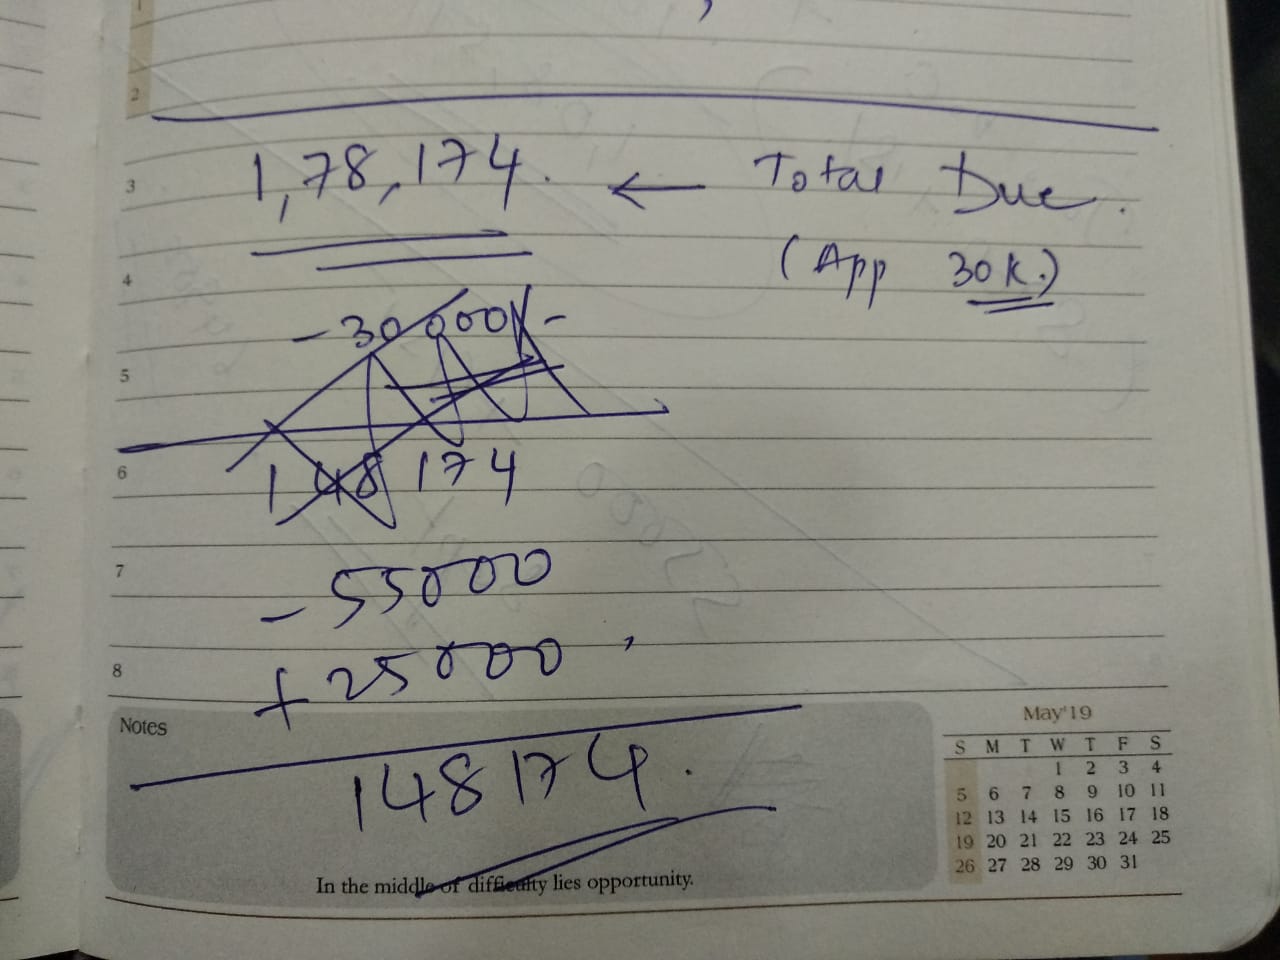 2
3 1,78,174. ← Total Due.
4 (App 30K.)
- 30000/-
5
6 148174
7 - 55000
8 + 25000
Notes
148174.
In the middle of difficulty lies opportunity.
May'19
S M T W T F S
1 2 3 4
5 6 7 8 9 10 11
12 13 14 15 16 17 18
19 20 21 22 23 24 25
26 27 28 29 30 31